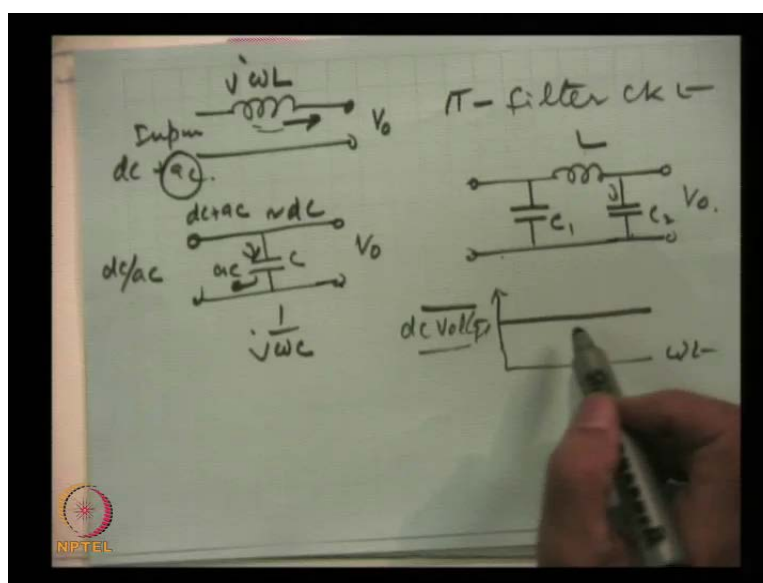 jωL
Input
dc + ac.
V₀
dc+ac ~dc
dc/ac
ac
C
V₀
1
jωC
π- filter ckt
L
C₁
C₂
V₀.
dc Volt
ωt
NPTEL